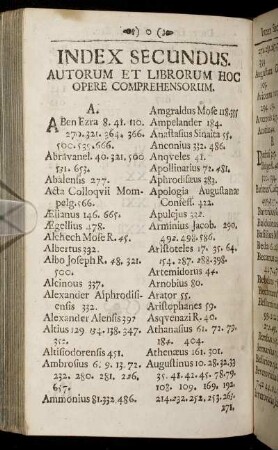 0
INDEX SECUNDUS.
AUTORUM ET LIBRORUM HOC
OPERE COMPREHENSORUM.
A.
ABen Ezra 8. 41. 110.
270. 321. 364. 366.
500. 535. 666.
Abravanel. 40. 321. 500
531. 653.
Abulensis 277.
Acta Colloqvii Mom-
pelg. 566.
Ælianus 146. 665.
Ægesilius 478.
Alchech Mose R. 45.
Albertus 232.
Albo Joseph R. 48. 321.
500.
Alcinous 337.
Alexander Aphrodisi-
ensis 332.
Alexander Alensis 397
Altius 129. 134. 138. 347.
352.
Altisiodorensis 451.
Ambrosius 6. 9. 13. 72.
232. 280. 281. 226.
657.
Ammonius 81. 332. 486.
Amgraldus Mose
Ampelander 184.
Anastasius Sinaita 55.
Anconius 332. 486.
Anqveles 41.
Apollinarius 72. 481.
Aphrodisæus 283.
Apologia Augustanæ
Confess. 422.
Apulejus 322.
Arminius Jacob. 290.
492. 498. 586.
Aristoteles 17. 35. 64.
154. 287. 288. 398.
Artemidorus 44.
Arnobius 80.
Arator 55.
Aristophanes 59.
Asqvenazi R. 40.
Athanasius 61. 72. 79.
184. 404.
Athenæus 161. 301.
Augustinus 10. 28. 32. 33
35. 41. 42. 45. 78. 79.
108. 109. 169. 192.
214. 232. 252. 253. 261.
271.